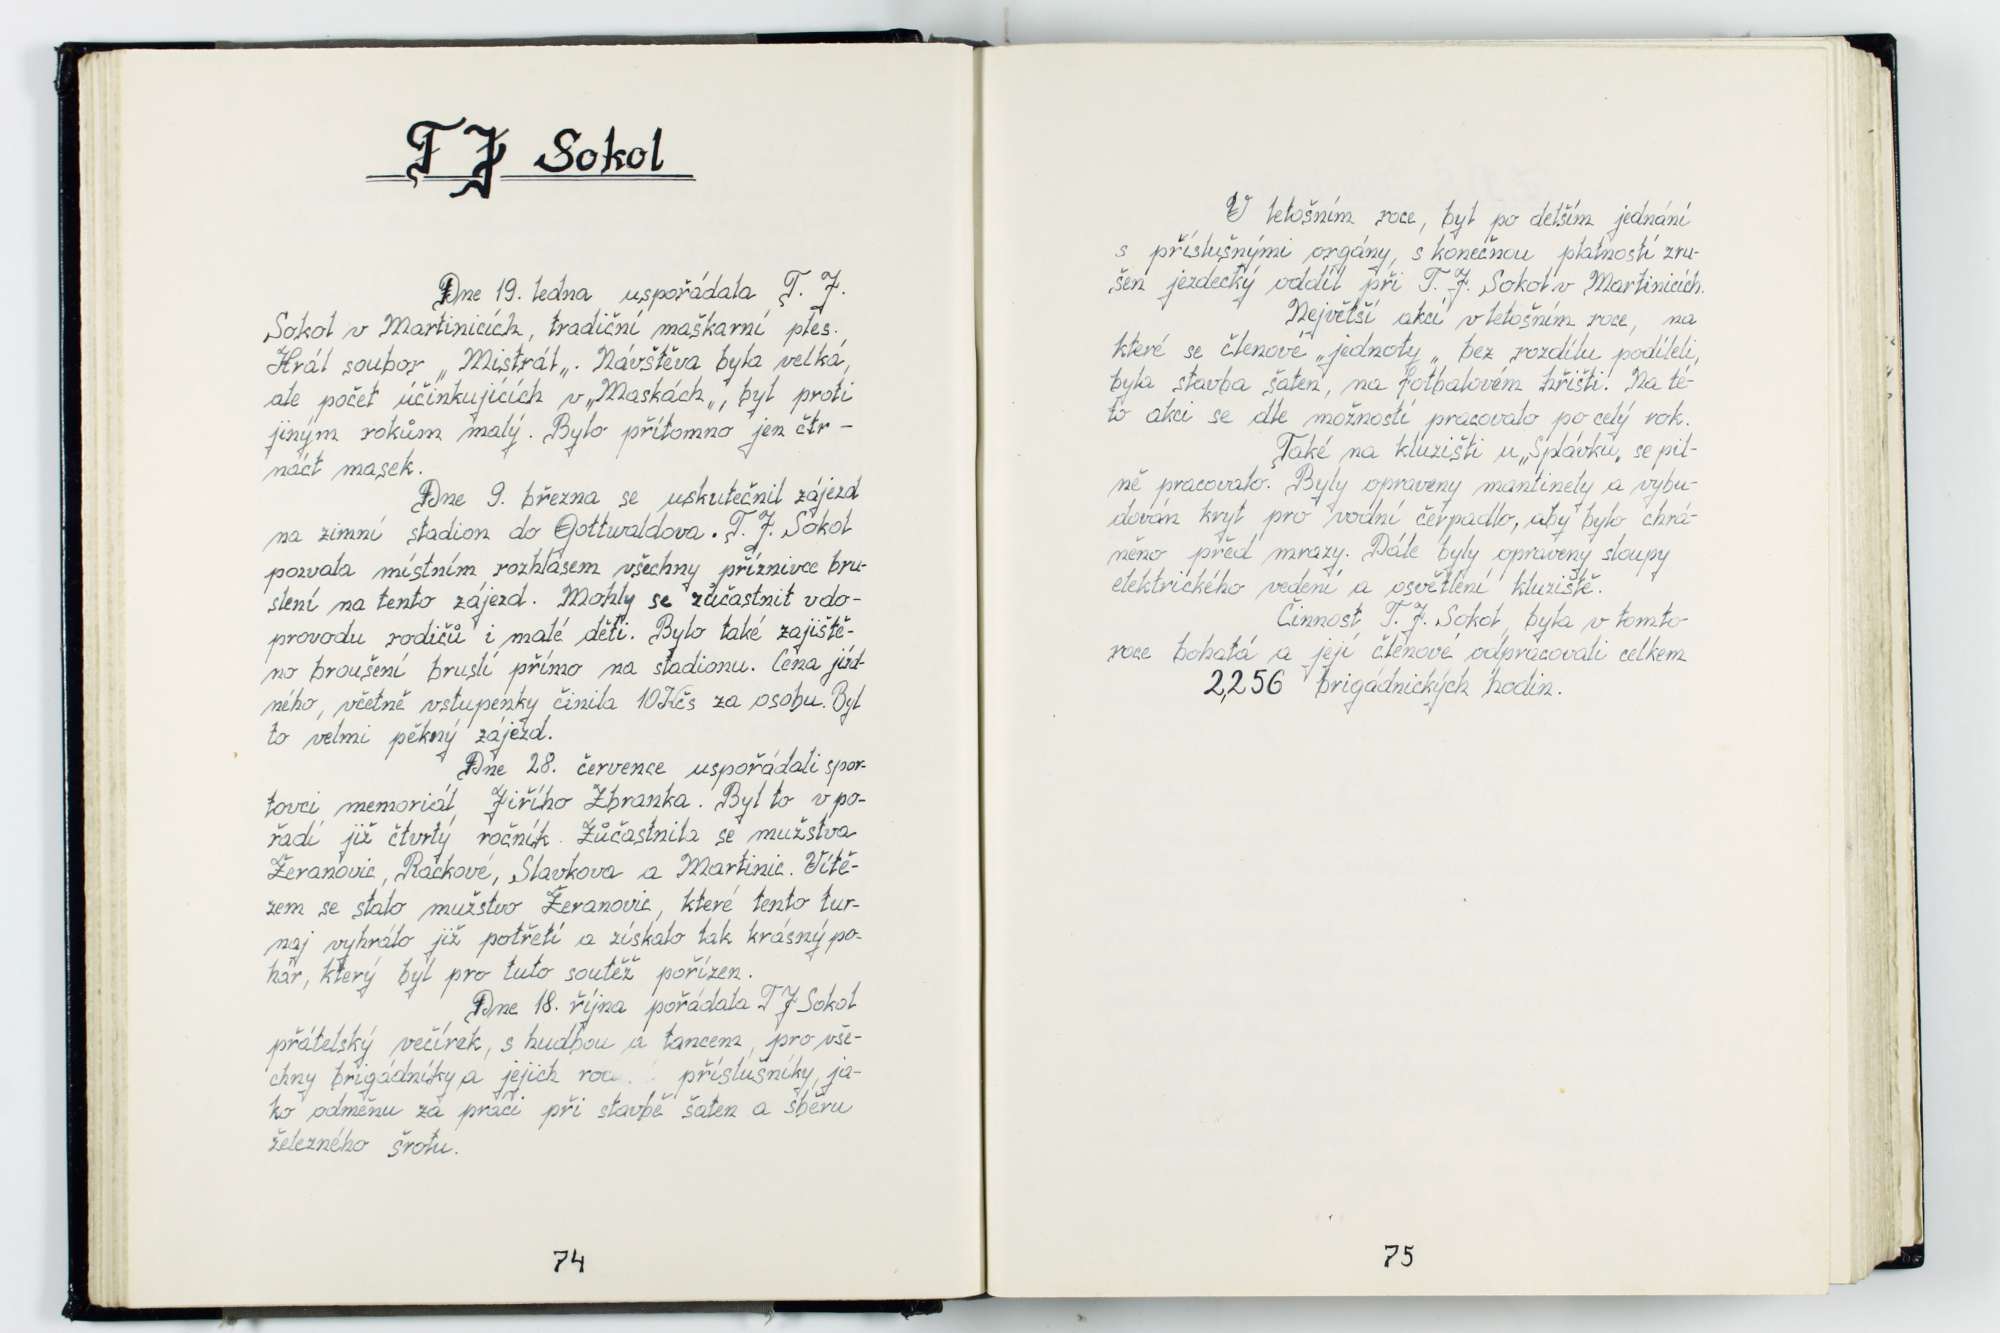 T J Sokol
Dne 19. ledna uspořádala T. J.
Sokol v Martinicích, tradiční maškarní ples.
Hrál soubor „Mistrál„. Návštěva byla velká,
ale počet účinkujících v „Maskách„, byl proti
jiným rokům malý. Bylo přítomno jen čtr-
náct masek.
Dne 9. března se uskutečnil zájezd
na zimní stadion do Gottwaldova. T. J. Sokol
pozvala místním rozhlasem všechny příznivce bru-
slení na tento zájezd. Mohly se zůčastnit v do-
provodu rodičů i malé děti. Bylo také zajiště-
no broušení bruslí přímo na stadionu. Cena jízd-
ného, včetně vstupenky činila 10 Kčs za osobu. Byl
to velmi pěkný zájezd.
Dne 28. července uspořádali spor-
tovci memoriál Jiřího Zbranka. Byl to v po-
řadí již čtvrtý ročník. Zůčastnila se mužstva
Žeranovic, Rackové, Slavkova a Martinic. Vítě-
zem se stalo mužstvo Žeranovic, které tento tur-
naj vyhrálo již potřetí a získalo tak krásný po-
hár, který byl pro tuto soutěž pořízen.
Dne 18. října pořádala T J Sokol
přátelský večírek, s hudbou a tancem, pro vše-
chny brigádníky a jejich rod příslušníky, ja-
ko odměnu za práci při stavbě šaten a sběru
železného šrotu.
74
V letošním roce, byl po delším jednání
s příslušnými orgány, s konečnou platností zru-
šen jezdecký oddíl při T. J. Sokol v Martinicích.
Největší akcí v letošním roce, na
které se členové „jednoty„ bez rozdílu podíleli,
byla stavba šaten, na fotbalovém hřišti. Na té-
to akci se dle možností pracovalo po celý rok.
Také na kluzišti u „Splávku„ se pil-
ně pracovalo. Byly opraveny mantinely a vybu-
dován kryt pro vodní čerpadlo, aby bylo chrá-
něno před mrazy. Dále byly opraveny sloupy
elektrického vedení a osvětlení kluziště.
Činnost T. J. Sokol, byla v tomto
roce bohatá a její členové odpracovali celkem
2,256 brigádnických hodin.
75